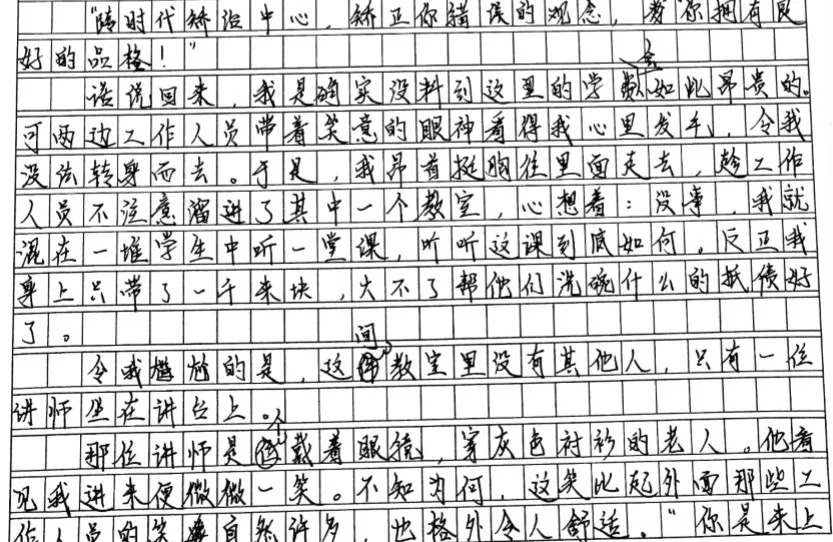 “跨时代矫治中心，矫正你错误的观念，帮你拥有良
好的品格！”
话说回来，我是确实没料到这里的学费如此昂贵的。
可两边工作人员带着笑意的眼神看得我心里发毛，令我
没法转身而去。于是，我昂首挺胸往里面走去，趁工作
人员不注意溜进了其中一个教室，心想着：没事，我就
混在一堆学生中听一堂课，听听这课到底如何，反正我
身上只带了一千来块，大不了帮他们洗碗什么的抵债好
了。
令我尴尬的是，这间教室里没有其他人，只有一位
讲师坐在讲台上。
那位讲师是个戴着眼镜，穿灰色衬衫的老人。他看
见我进来便微微一笑。不知为何，这笑比起外面那些工
作人员的笑自然许多，也格外令人舒适。“你是来上